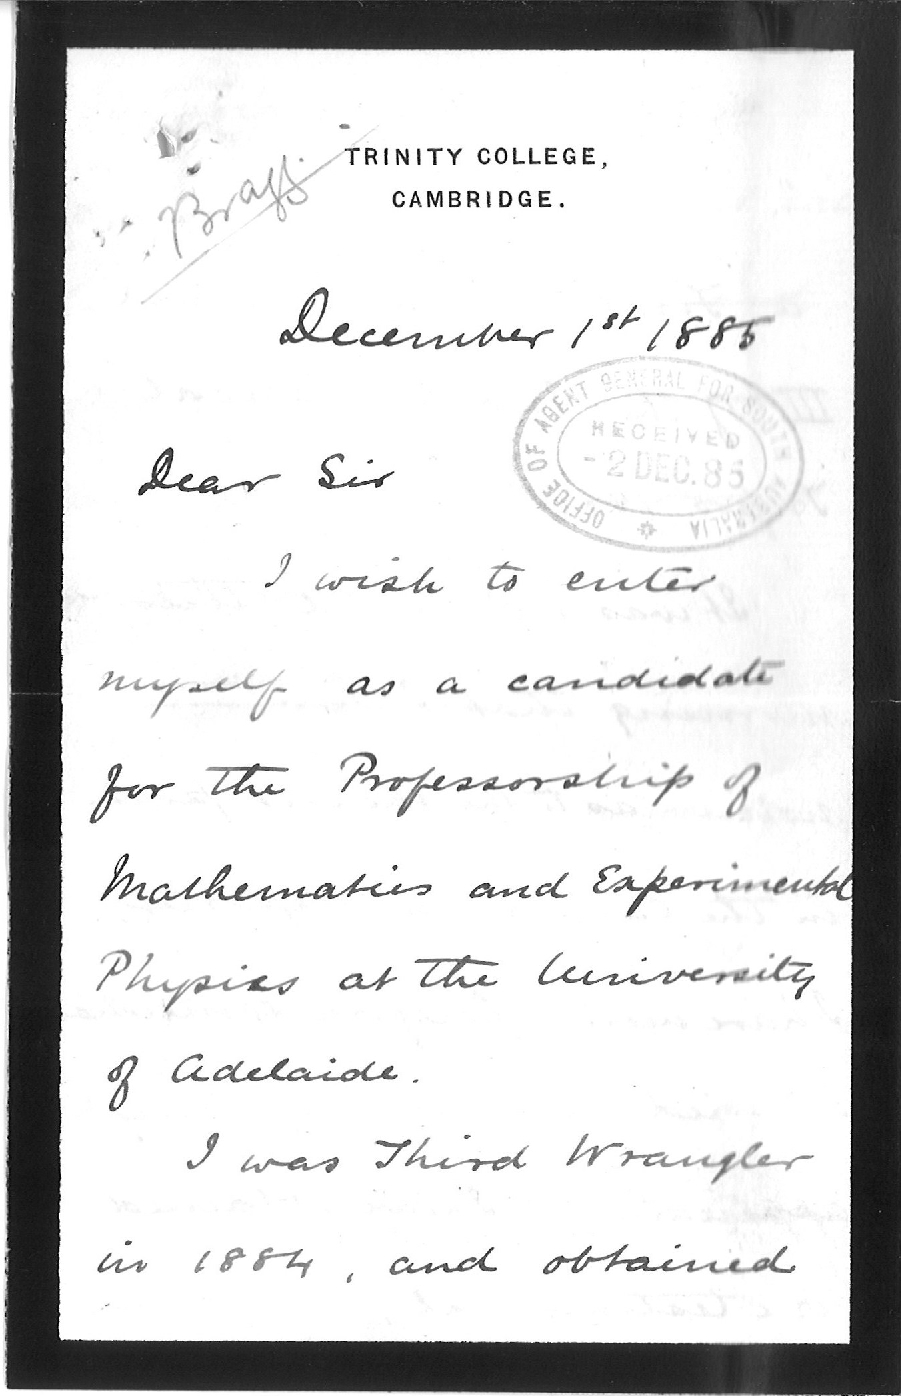 Bragg
TRINITY COLLEGE,
CAMBRIDGE.
December 1st 1885
OFFICE OF AGENT GENERAL FOR SOUTH AUSTRALIA
RECEIVED
-2 DEC.85
Dear Sir
I wish to enter
myself as a candidate
for the Professorship of
Mathematics and Experimental
Physics at the University
of Adelaide.
I was Third Wrangler
in 1884, and obtained